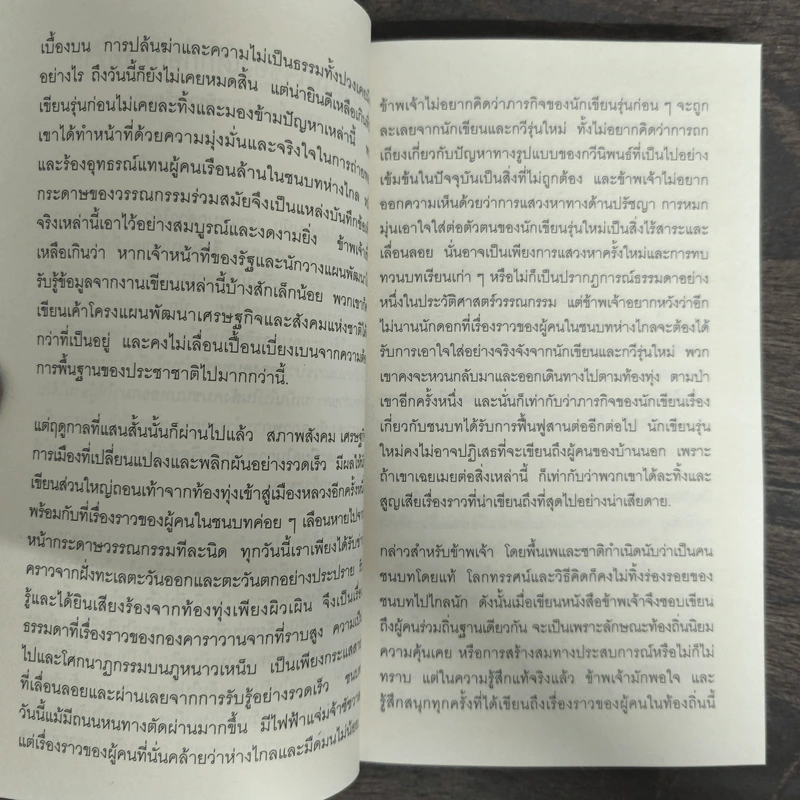 เบื้องบน การปล้นฆ่าและความไม่เป็นธรรมทั้งปวงเคย
อย่างไร ถึงวันนี้ก็ยังไม่เคยหมดสิ้น แต่น่ายินดีเหลือเกิน
เขียนรุ่นก่อนไม่เคยละทิ้งและมองข้ามปัญหาเหล่านี้
เขาได้ทำหน้าที่ด้วยความมุ่งมั่นและจริงใจในการ
และร้องอุทธรณ์แทนผู้คนเรือนล้านในชนบทห่างไกล
กระดาษของวรรณกรรมร่วมสมัยจึงเป็นแหล่งบันทึก
จริงเหล่านี้เอาไว้อย่างสมบูรณ์และงดงามยิ่ง ข้าพเจ้า
เหลือเกินว่า หากเจ้าหน้าที่ของรัฐและนักวางแผนพัฒนา
รับรู้ข้อมูลจากงานเขียนเหล่านี้บ้างสักเล็กน้อย พวกเขา
เขียนเค้าโครงแผนพัฒนาเศรษฐกิจและสังคมแห่งชาติ
กว่าที่เป็นอยู่ และคงไม่เลื่อนเปื้อนเบี่ยงเบนจากความ
การพื้นฐานของประชาชาติไปมากกว่านี้.
แต่ฤดูกาลที่แสนสั้นนั้นก็ผ่านไปแล้ว สภาพสังคม เศรษฐกิ
การเมืองที่เปลี่ยนแปลงและพลิกผันอย่างรวดเร็ว มีผลให้
เขียนส่วนใหญ่ถอนเท้าจากท้องทุ่งเข้าสู่เมืองหลวงอีกครั้ง
พร้อมกับที่เรื่องราวของผู้คนในชนบทค่อย ๆ เลือนหายไป
หน้ากระดาษวรรณกรรมทีละนิด ทุกวันนี้เราเพียงได้รับ
คราวจากฝั่งทะเลตะวันออกและตะวันตกอย่างประปราย
รู้และได้ยินเสียงร้องจากท้องทุ่งเพียงผิวเผิน จึงเป็น
ธรรมดาที่เรื่องราวของกองคาราวานจากที่ราบสูง ความเป็น
ไปและโศกนาฏกรรมบนภูหนาวเหน็บ เป็นเพียงกระแส
ที่เลื่อนลอยและผ่านเลยจากการรับรู้อย่างรวดเร็ว ชนบท
วันนี้แม้มีถนนหนทางตัดผ่านมากขึ้น มีไฟฟ้าแจ่มจ้า
แต่เรื่องราวของผู้คนที่นั่นคล้ายว่าห่างไกลและมืดมน
ข้าพเจ้าไม่อยากคิดว่าภารกิจของนักเขียนรุ่นก่อน ๆ จะถูก
ละเลยจากนักเขียนและกวีรุ่นใหม่ ทั้งไม่อยากคิดว่าการถก
เถียงเกี่ยวกับปัญหาทางรูปแบบของกวีนิพนธ์ที่เป็นไปอย่าง
เข้มข้นในปัจจุบันเป็นสิ่งที่ไม่ถูกต้อง และข้าพเจ้าไม่อยาก
ออกความเห็นด้วยว่าการแสวงหาทางด้านปรัชญา การหมก
มุ่นเอาใจใส่ต่อตัวตนของนักเขียนรุ่นใหม่เป็นสิ่งไร้สาระและ
เลื่อนลอย นั่นอาจเป็นเพียงการแสวงหาครั้งใหม่และการทบ
ทวนบทเรียนเก่า ๆ หรือไม่ก็เป็นปรากฏการณ์ธรรมดาอย่าง
หนึ่งในประวัติศาสตร์วรรณกรรม แต่ข้าพเจ้าอยากหวังว่าอีก
ไม่นานนักดอกที่เรื่องราวของผู้คนในชนบทห่างไกลจะต้องได้
รับการเอาใจใส่อย่างจริงจังจากนักเขียนและกวีรุ่นใหม่ พวก
เขาคงจะหวนกลับมาและออกเดินทางไปตามท้องทุ่ง ตามป่า
เขาอีกครั้งหนึ่ง และนั่นก็เท่ากับว่าภารกิจของนักเขียนเรื่อง
เกี่ยวกับชนบทได้รับการฟื้นฟูสานต่ออีกต่อไป นักเขียนรุ่น
ใหม่คงไม่อาจปฏิเสธที่จะเขียนถึงผู้คนของบ้านนอก เพราะ
ถ้าเขาเฉยเมยต่อสิ่งเหล่านี้ ก็เท่ากับว่าพวกเขาได้ละทิ้งและ
สูญเสียเรื่องราวที่น่าเขียนถึงที่สุดไปอย่างน่าเสียดาย.
กล่าวสำหรับข้าพเจ้า โดยพื้นเพและชาติกำเนิดนับว่าเป็นคน
ชนบทโดยแท้ โลกทรรศน์และวิธีคิดก็คงไม่ทิ้งร่องรอยของ
ชนบทไปไกลนัก ดังนั้นเมื่อเขียนหนังสือข้าพเจ้าจึงชอบเขียน
ถึงผู้คนร่วมถิ่นฐานเดียวกัน จะเป็นเพราะลักษณะท้องถิ่นนิยม
ความคุ้นเคย หรือการสร้างสมทางประสบการณ์หรือไม่ก็ไม่
ทราบ แต่ในความรู้สึกแท้จริงแล้ว ข้าพเจ้ามักพอใจ และ
รู้สึกสนุกทุกครั้งที่ได้เขียนถึงเรื่องราวของผู้คนในท้องถิ่นนี้